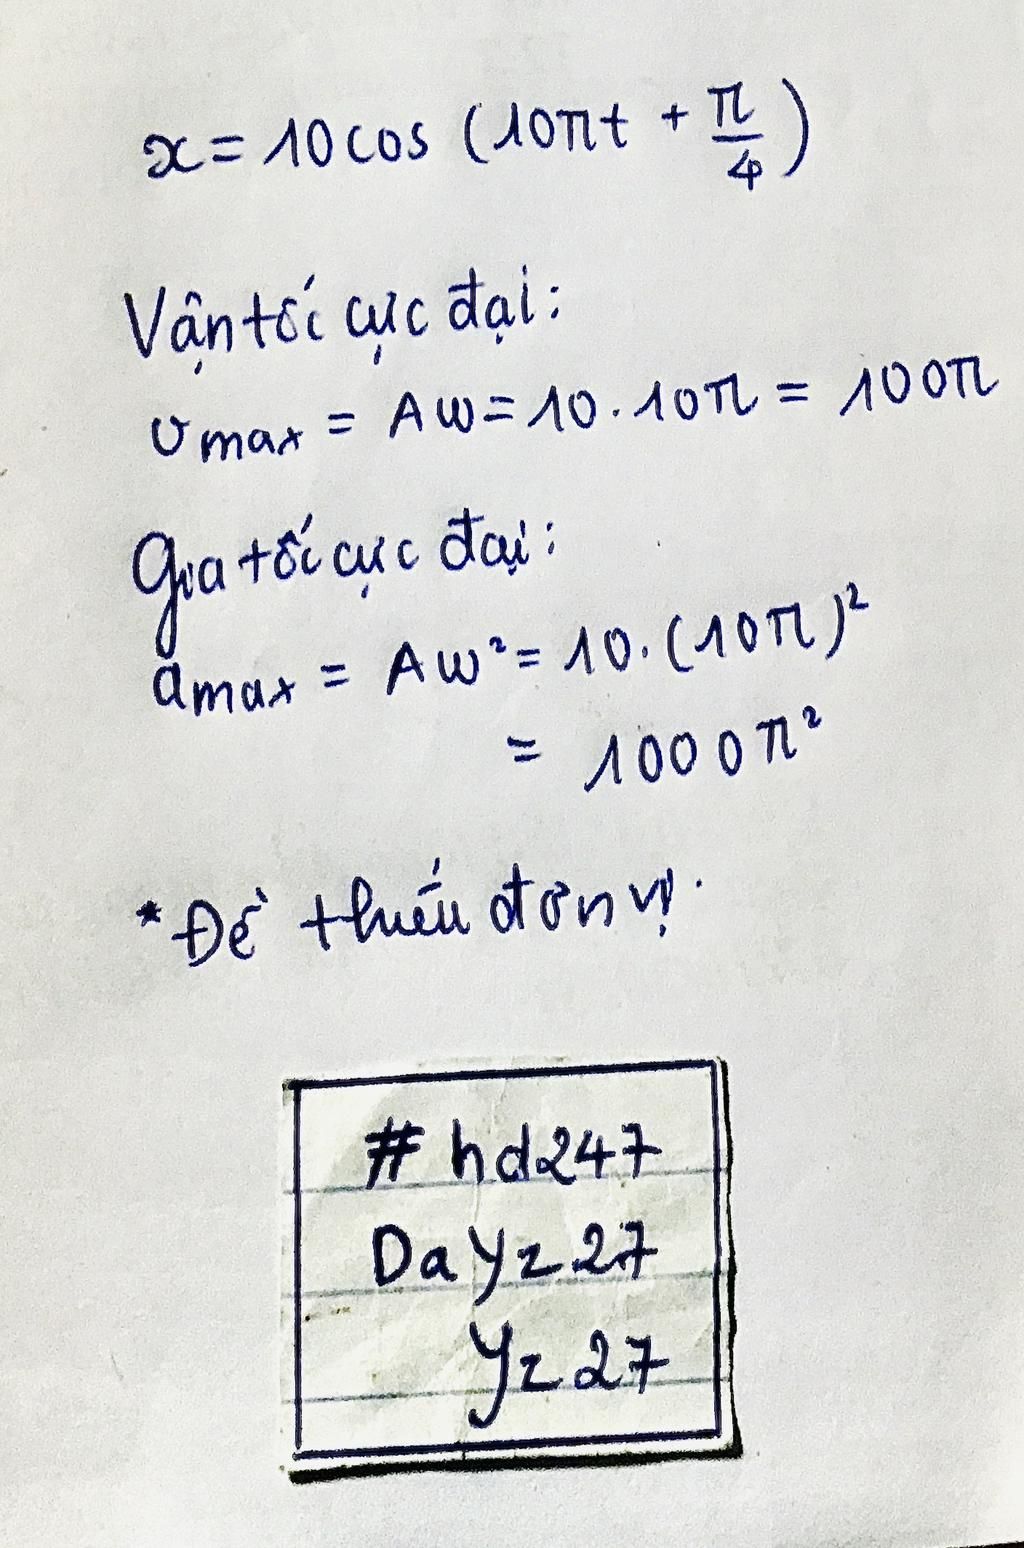 x = 10cos (10πt + π/4)
Vận tốc cực đại:
vmax = Aω = 10.10π = 100π
Gia tốc cực đại:
amax = Aω² = 10.(10π)²
= 1000π²
*Đề thiếu đơn vị.
# hd247
DaYz27
Yz27